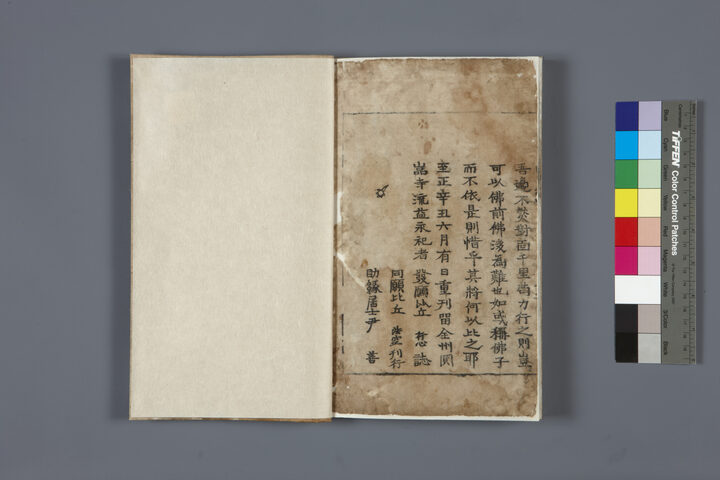 吾邊不契對面千里當力行之則豈
可以佛前佛後為難也如或稱佛子
而不依是則惜乎其將何以比之耶
至正辛丑六月有日重刊留全州圓
嵓寺流益永祀者 發願比丘 志誌
同願比丘 法空 刊行
助緣居士尹 善
TIFFEN Color Control Patches
Blue
Cyan
Green
Yellow
Red
Magenta
White
3/Color
Black